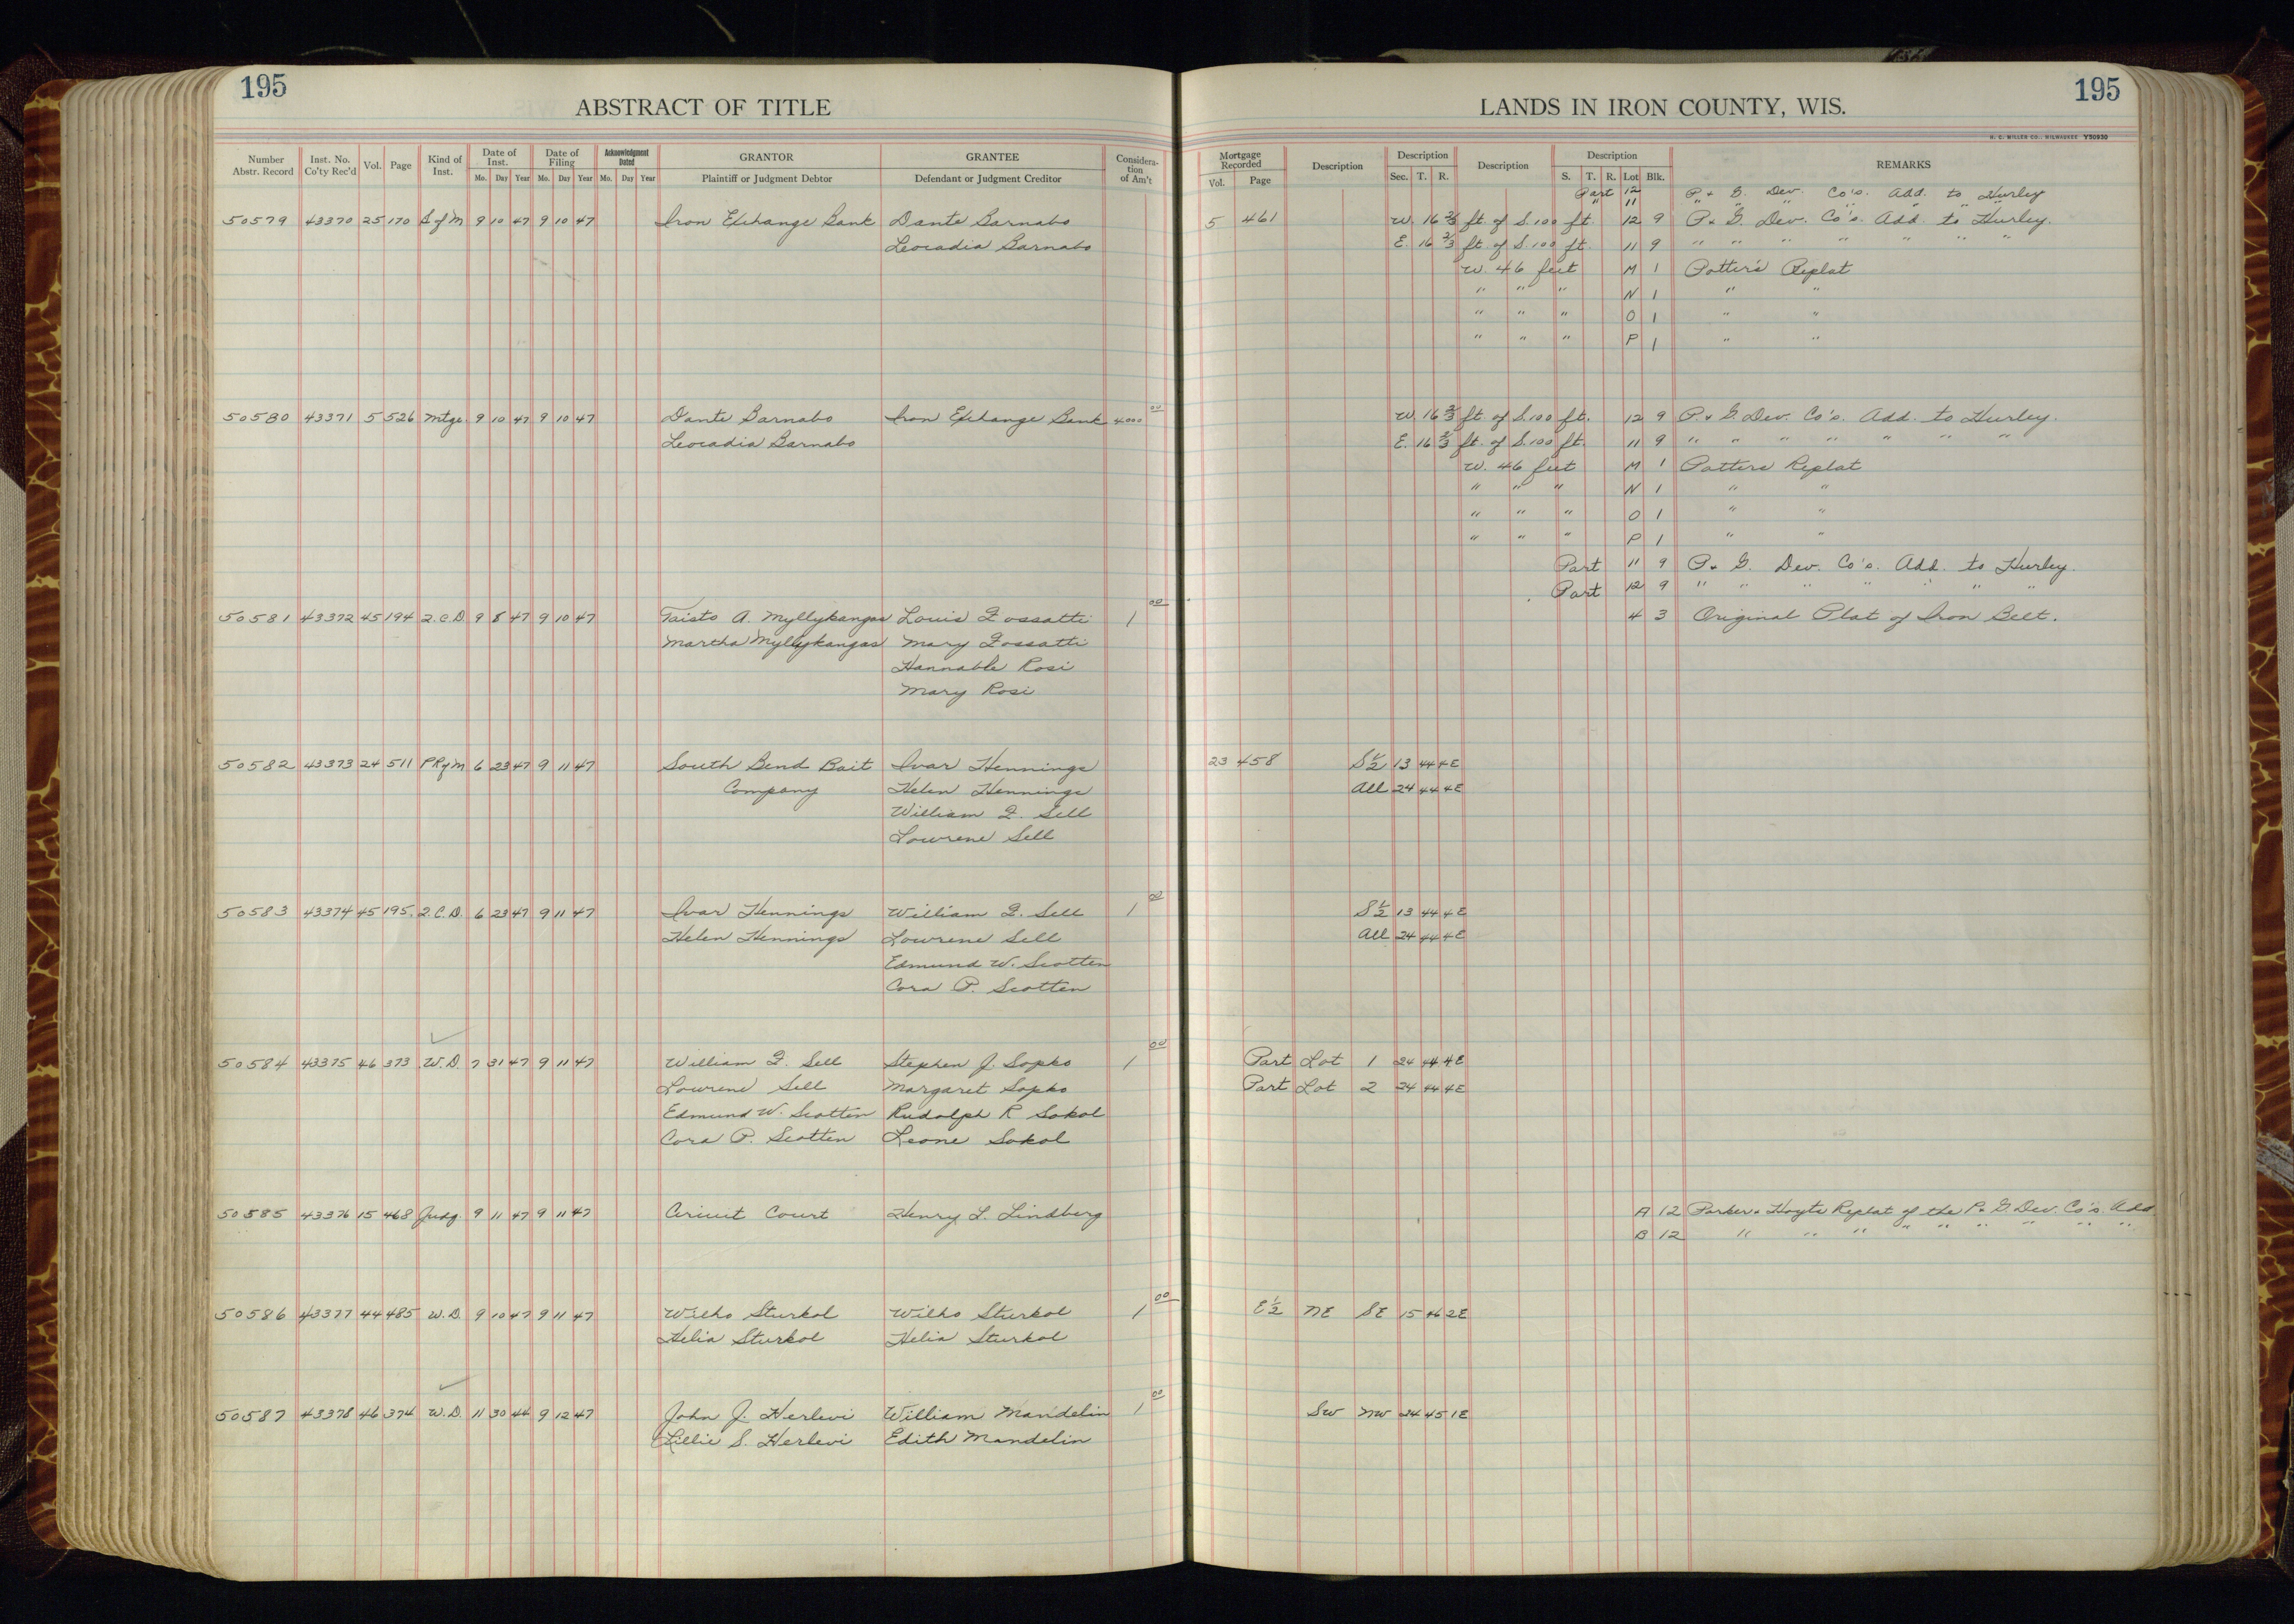 195
195
ABSTRACT OF TITLE
LANDS IN IRON COUNTY, WIS.
H. C. MILLER CO., MILWAUKEE Y50930
Number Abstr. Record Inst. No. Co'ty Rec'd Vol. Page Kind of Inst. Date of Inst. Mo. Day Year Date of Filing Mo. Day Year Acknowledgment Dated Mo. Day Year GRANTOR Plaintiff or Judgment Debtor GRANTEE Defendant or Judgment Creditor Consideration of Am't
Mortgage Recorded Vol. Page Description Description Sec. T. R. Description Description S. T. R. Lot Blk. REMARKS
Part 12 P. & G. Dev. Co's. Add. to Hurley
" 11 " " " " " "
50579 43370 25 170 S of M 9 10 47 9 10 47 Iron Exchange Bank Dante Barnabo 5 461 W. 16 2/3 ft. of S. 100 ft. 12 9 P. & G. Dev. Co's. Add. to Hurley.
Leocadia Barnabo E. 16 2/3 ft. of S. 100 ft. 11 9 " " " " " " "
W. 46 feet M 1 Potter's Replat
" " " N 1 " "
" " " O 1 " "
" " " P 1 " "
50580 43371 5 526 Mtge. 9 10 47 9 10 47 Dante Barnabo Iron Exchange Bank 4000 00 W. 16 2/3 ft. of S. 100 ft. 12 9 P. & G. Dev. Co's. Add. to Hurley.
Leocadia Barnabo E. 16 2/3 ft. of S. 100 ft. 11 9 " " " " " " "
W. 46 feet M 1 Potters Replat
" " " N 1 " "
" " " O 1 " "
" " " P 1 " "
Part 11 9 P. & G. Dev. Co's. Add. to Hurley.
Part 12 9 " " " " " " "
50581 43372 45 194 Q.C.D. 9 8 47 9 10 47 Taisto A. Myllykangas Louis F. Fossatti 1 00 4 3 Original Plat of Iron Belt.
Martha Myllykangas Mary Fossatti
Hannable Rosi
Mary Rosi
50582 43373 24 511 P R of M 6 23 47 9 11 47 South Bend Bait Ivar Hennings 23 458 S½ 13 44 4E
Company Helen Hennings All 24 44 4E
William F. Sell
Lowrene Sell
50583 43374 45 195 Q.C.D. 6 23 47 9 11 47 Ivar Hennings William F. Sell 1 00 S½ 13 44 4E
Helen Hennings Lowrene Sell All 24 44 4E
Edmund W. Scotten
Cora P. Scotten
50584 43375 46 373 W.D. 7 31 47 9 11 47 William F. Sell Stephen J. Sopko 1 00 Part Lot 1 24 44 4E
Lowrene Sell Margaret Sopko Part Lot 2 24 44 4E
Edmund W. Scotten Rudolph R Sokol
Cora P. Scotten Leone Sokol
50585 43376 15 468 Judg. 9 11 47 9 11 47 Circuit Court Henry L. Lindberg A 12 Parker & Hoyts Replat of the P. & G. Dev. Co's. Add
B 12 " " " " " " " " "
50586 43377 44 485 W.D. 9 10 47 9 11 47 Wilho Sturkol Wilho Sturkol 1 00 E½ NE SE 15 46 2E
Helia Sturkol Helia Sturkol
50587 43378 46 374 W.D. 11 30 44 9 12 47 John J. Herlevi William Mandelin 1 00 SW NW 24 45 1E
Lillie S. Herlevi Edith Mandelin